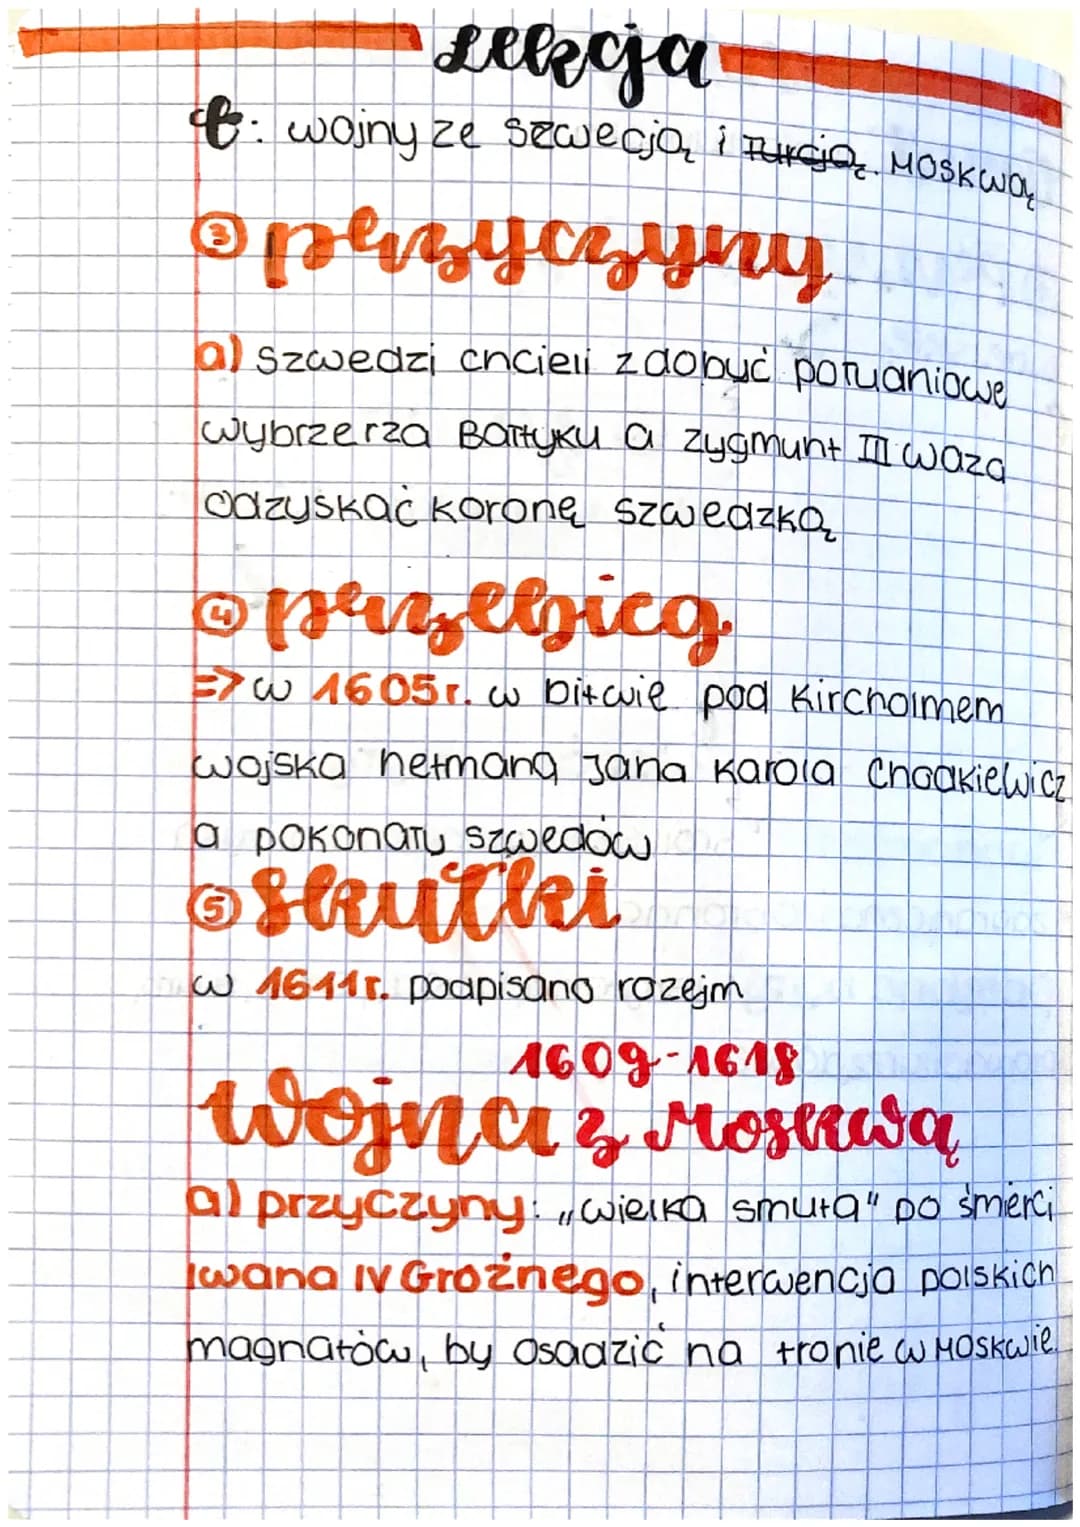 Lekcja
t: wojny ze szwecją i Turcją. Moskwą
③ przyczyny
a) Szwedzi chcieli zdobyć południowe
wybrzerza Bałtyku a Zygmunt III Waza
odzyskać koronę szwedzką
④ przebieg
=> w 1605r. w bitwie pod Kircholmem
wojska hetmana Jana Karola Chodkiewicz
a pokonały szwedów
⑤ skutki
w 1611r. podpisano rozejm
1609-1618
wojna z Moskwą
a) przyczyny: „wielka smuta" po śmierci
Iwana IV Groźnego, interwencja polskich
magnatów, by osadzić na tronie w Moskwie